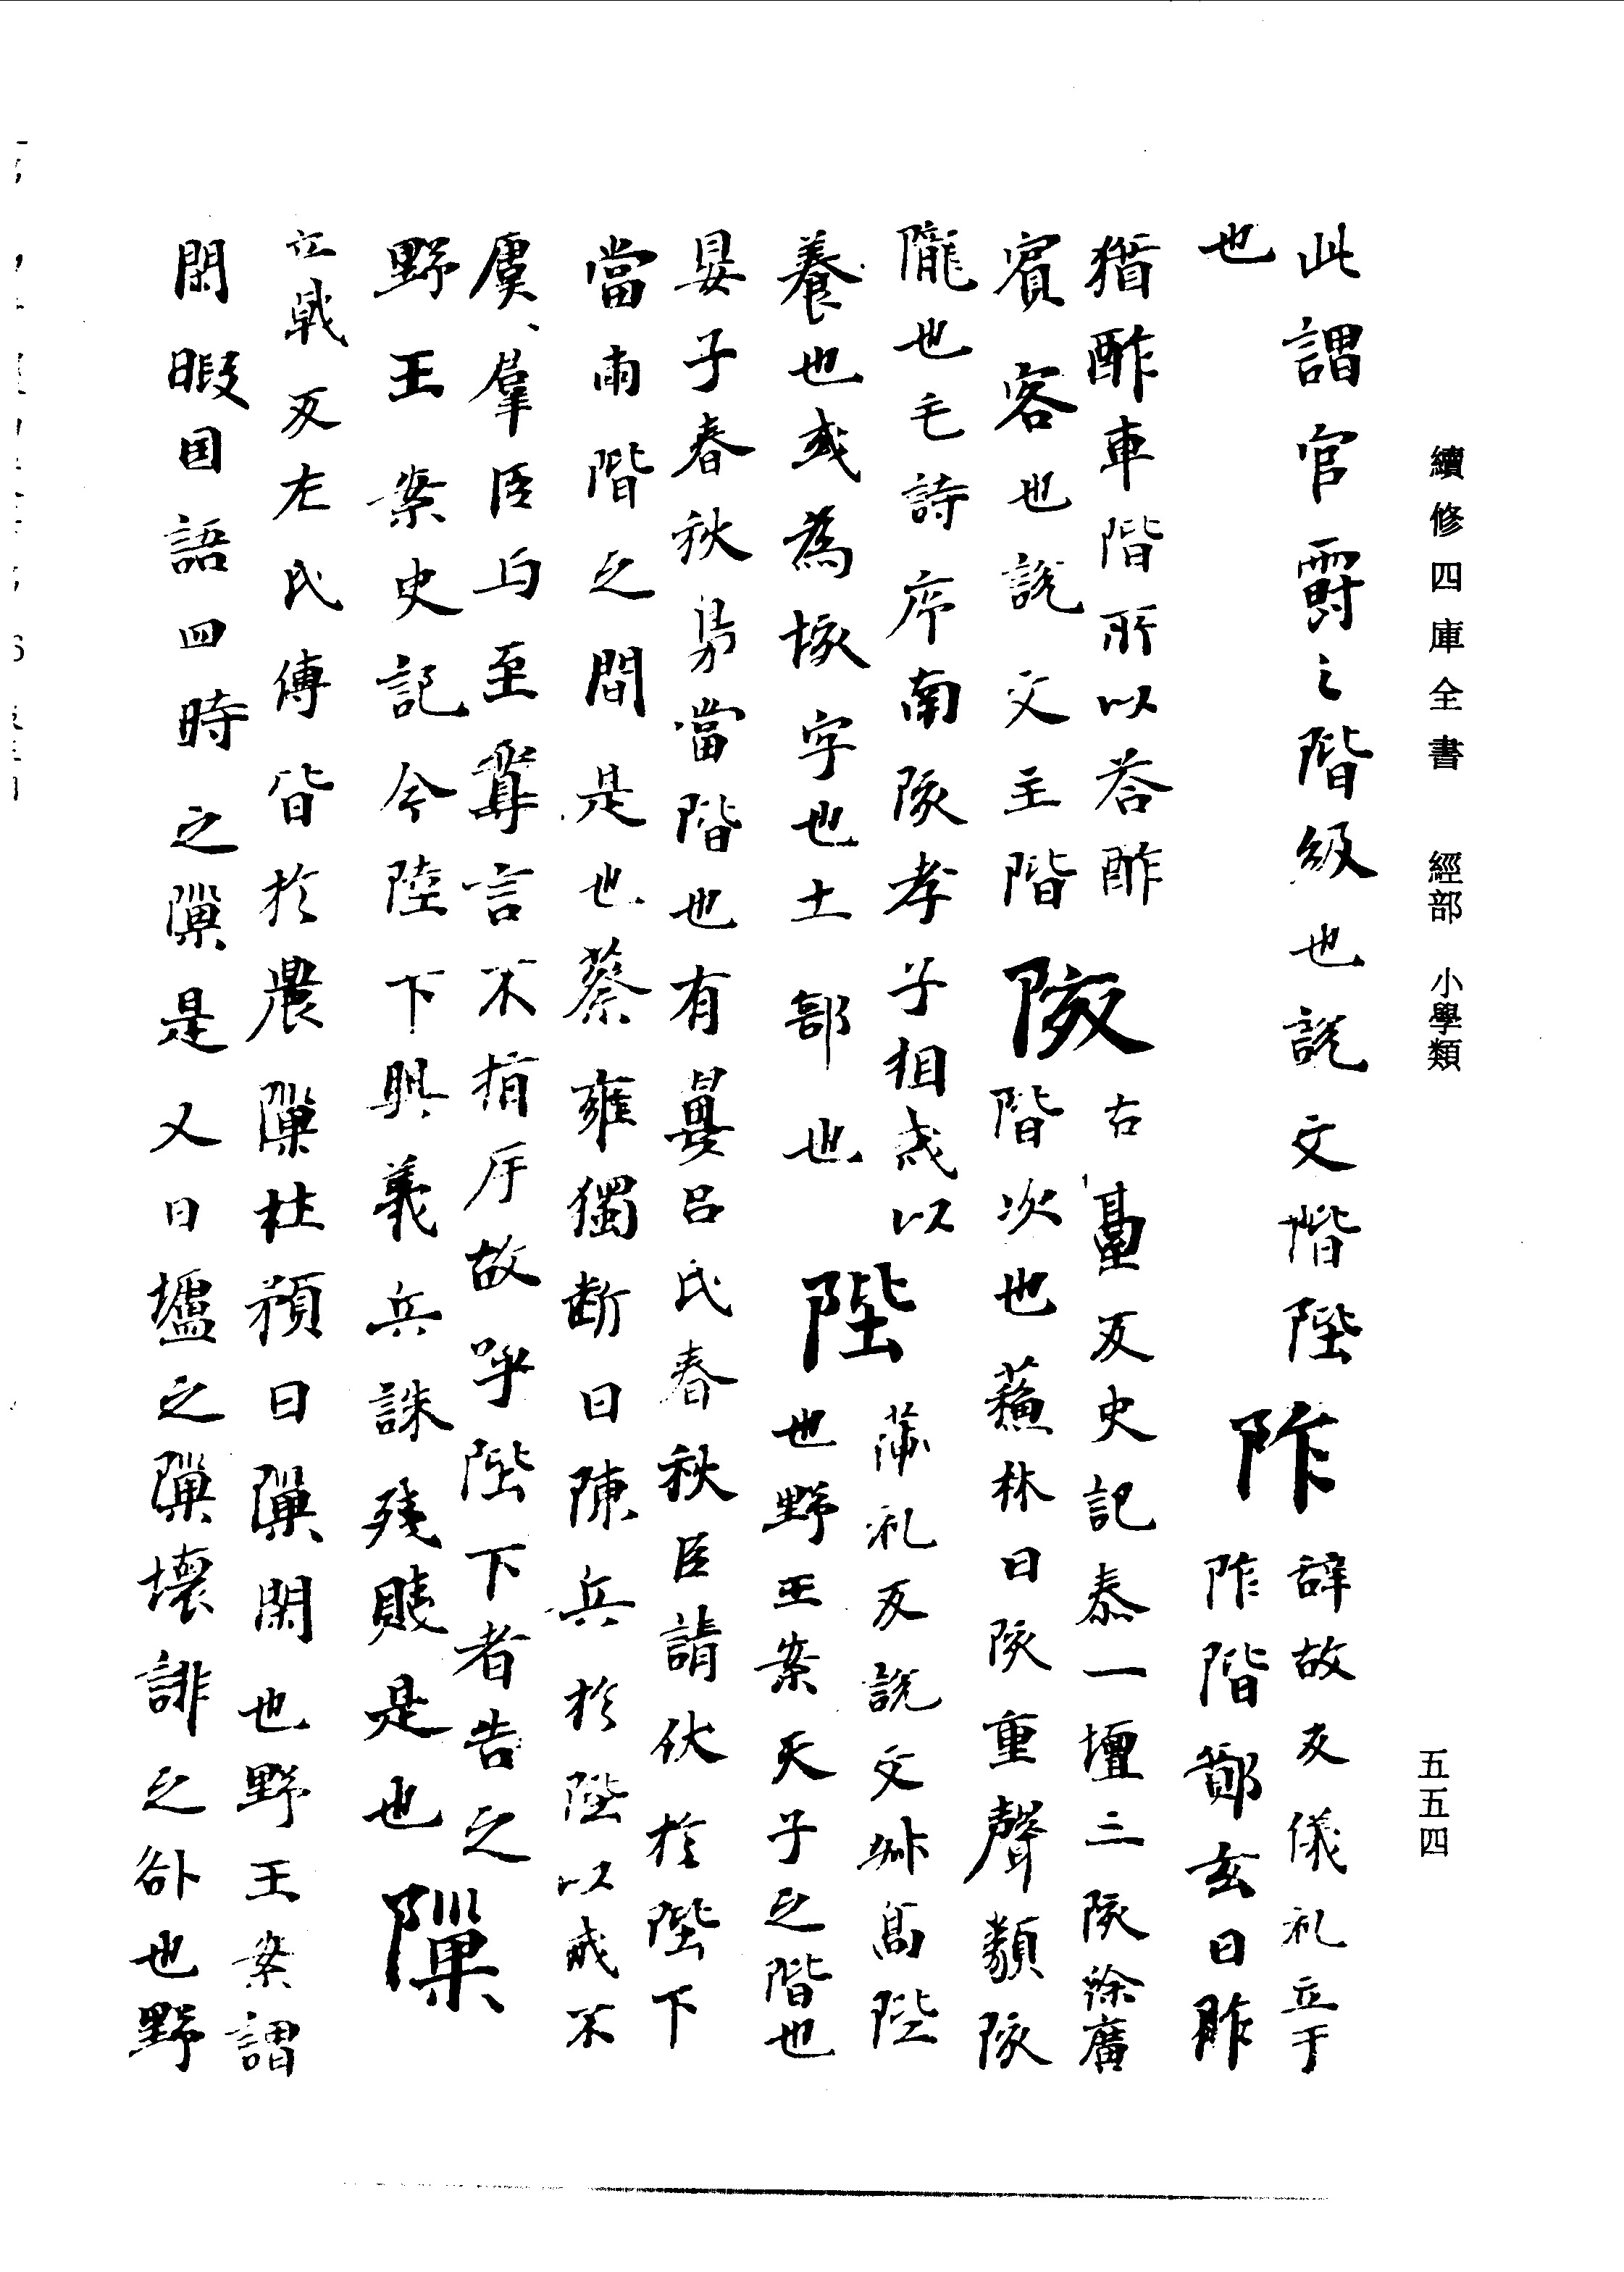 續修四庫全書 經部 小學類
五五四
此謂官爵之階級也說文階陛
也
阼
辭故反儀礼立于
阼階鄭玄曰阼
猶酢車階所以荅酢
賔客也說文主階
陔
古臺反史記泰一壇三陔徐廣
階次也蘓林曰陔重聲類陔
隴也毛詩序南陔孝子相戒以
養也或為垓字也土部也
陛
蒲礼反說文升高陛
也野王案天子之階也
晏子春秋當階也有晏呂氏春秋臣請伏於陛下
當雨階之間是也蔡雍獨断曰陳兵於陛以戒不
虞、羣臣与至尊言不指斥故呼陛下者告之
野王案史記今陛下興義兵誅殘賊是也
隟
立戟反左氏傳皆於農隟杜預曰隟閑也野王案謂
閑暇国語四時之隟是又曰壚之隟壞誹之也野